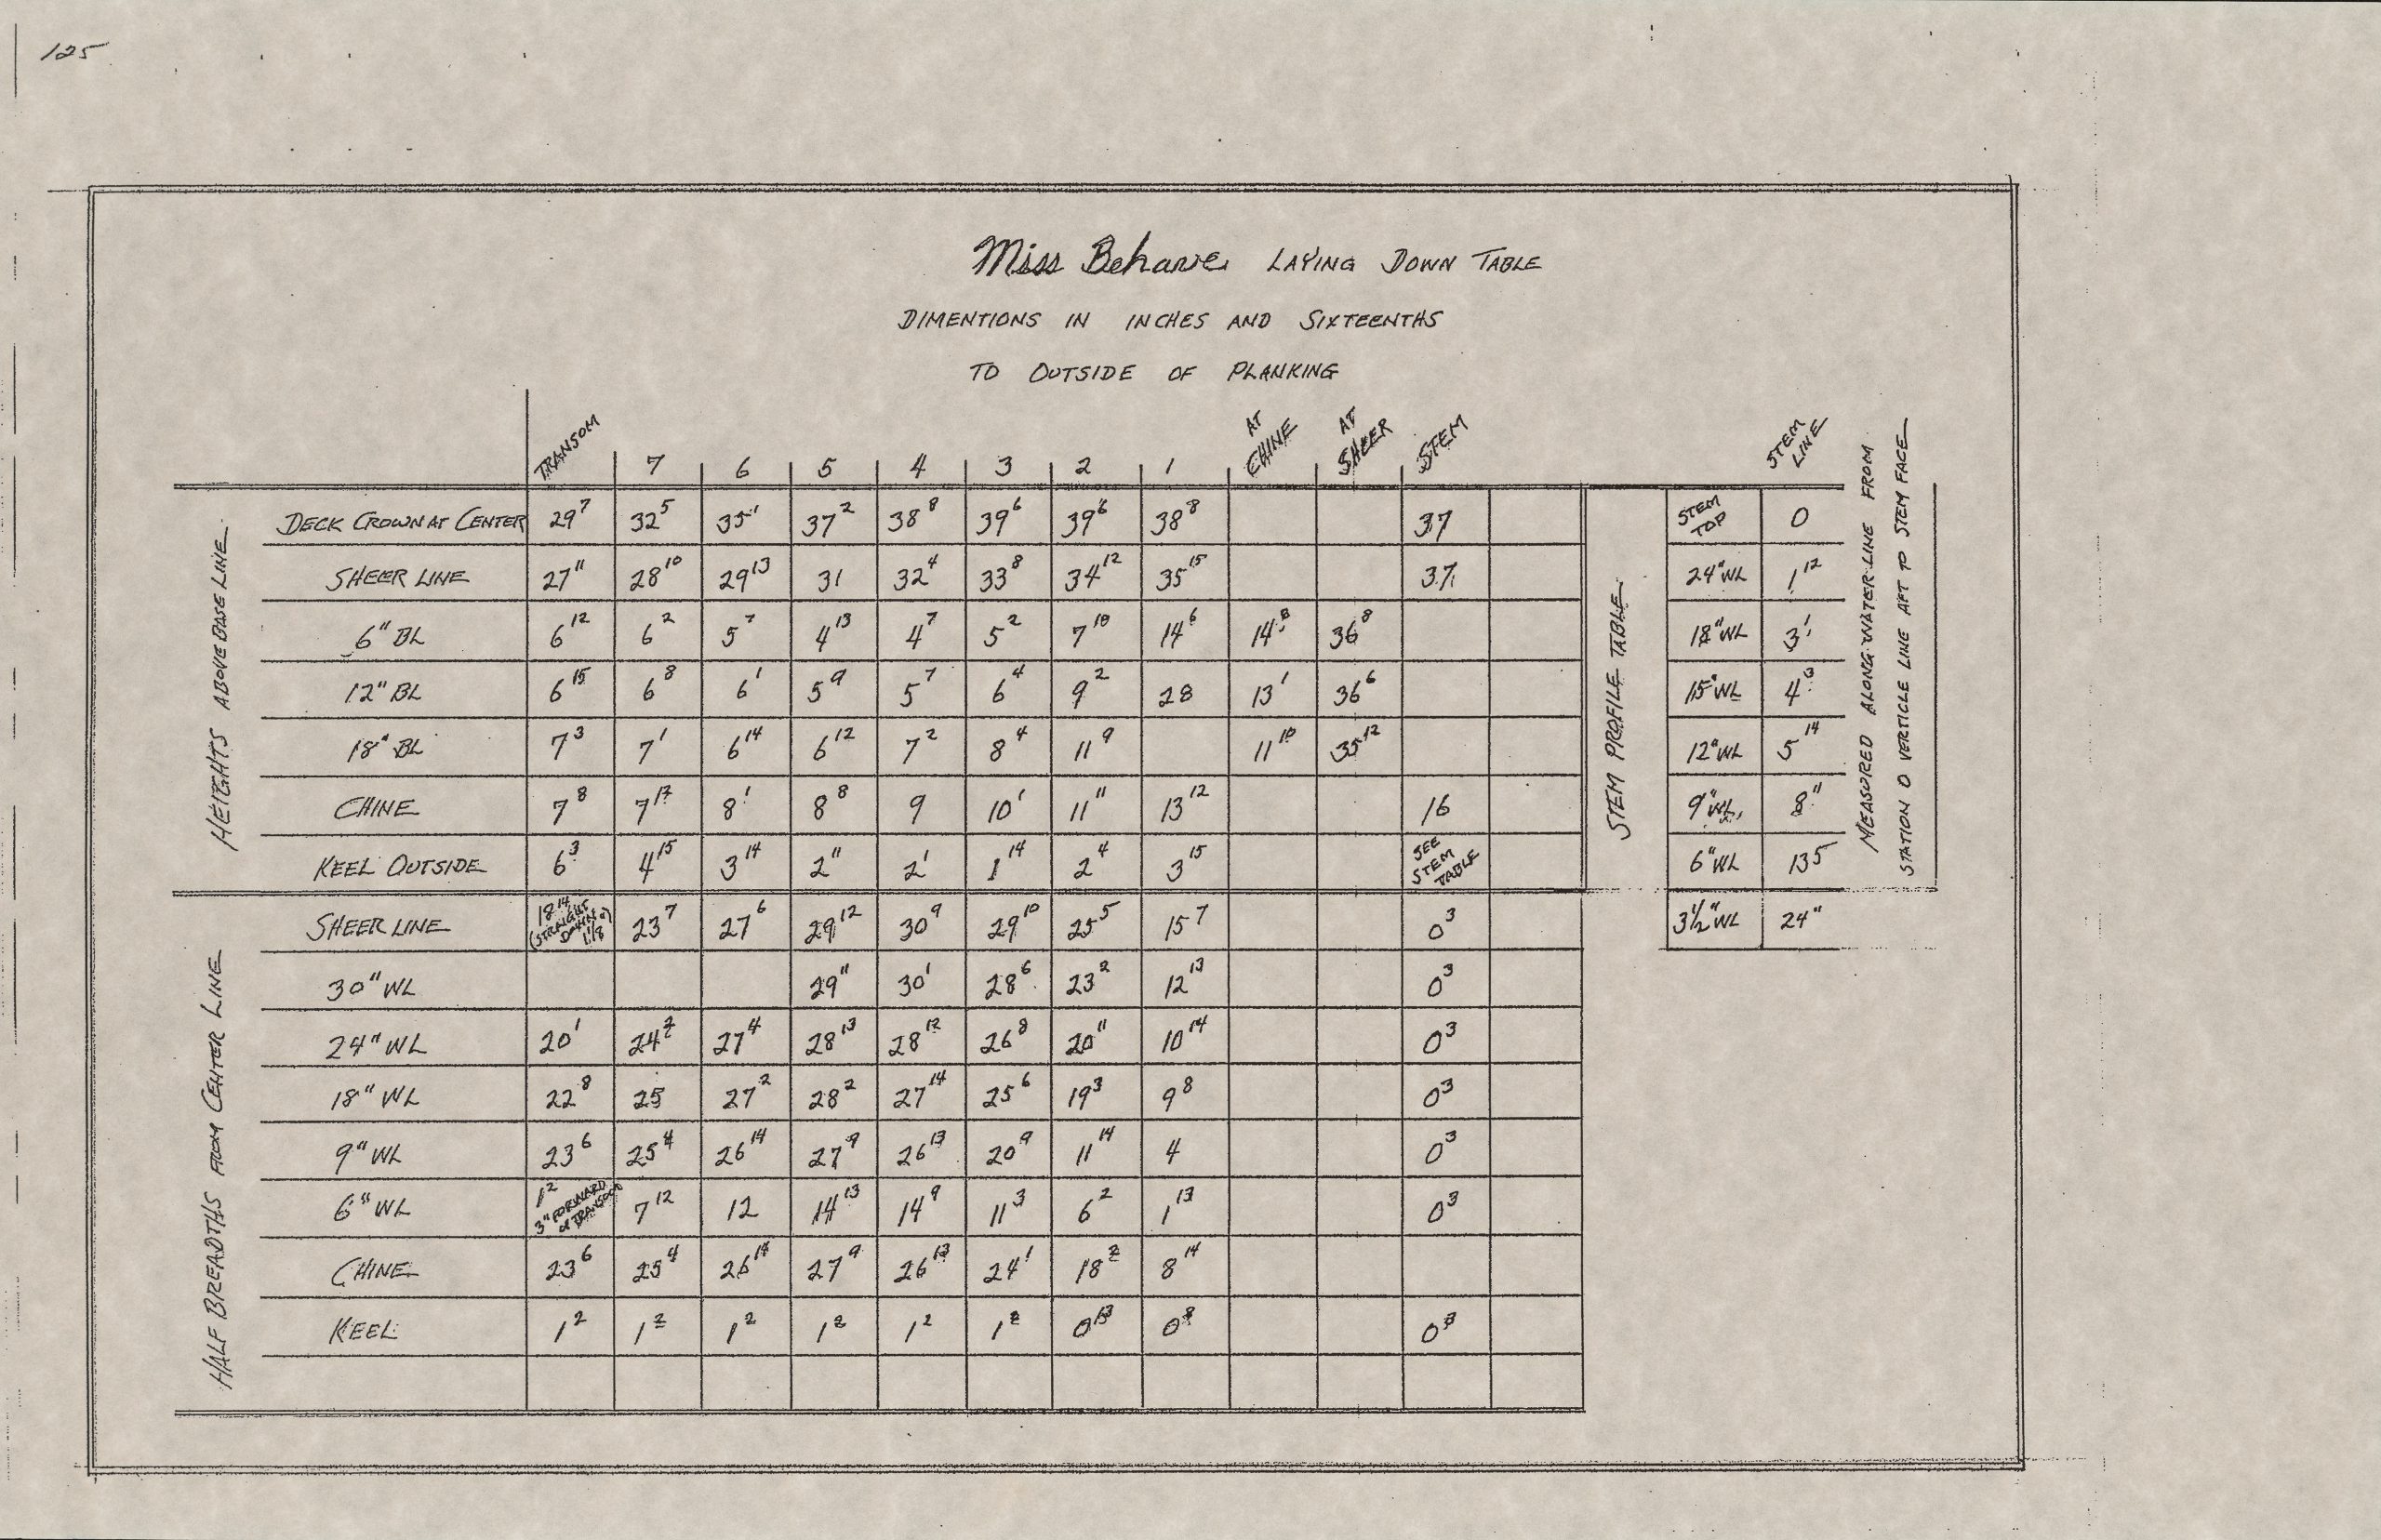 125
Miss Behave LAYING DOWN TABLE
DIMENTIONS IN INCHES AND SIXTEENTHS
TO OUTSIDE OF PLANKING
TRANSOM 7 6 5 4 3 2 1 AT CHINE AT SHEER STEM
HEIGHTS ABOVE BASE LINE
DECK CROWN AT CENTER 29⁷ 32⁵ 35¹ 37² 38⁸ 39⁶ 39⁶ 38⁸ 37
SHEER LINE 27¹¹ 28¹⁰ 29¹³ 31 32⁴ 33⁸ 34¹² 35¹⁵ 37
6" BL 6¹² 6² 5⁷ 4¹³ 4⁷ 5² 7¹⁰ 14⁶ 14⁸ 36⁸
12" BL 6¹⁵ 6⁸ 6¹ 5⁹ 5⁷ 6⁴ 9² 28 13¹ 36⁶
18" BL 7³ 7¹ 6¹⁴ 6¹² 7² 8⁴ 11⁹ 11¹⁰ 35¹²
CHINE 7⁸ 7¹² 8¹ 8⁸ 9 10¹ 11¹¹ 13¹² 16
KEEL OUTSIDE 6³ 4¹⁵ 3¹⁴ 2¹¹ 2¹ 1¹⁴ 2⁴ 3¹⁵ SEE STEM TABLE
HALF BREADTHS FROM CENTER LINE
SHEER LINE 18¹⁴ (STRAIGHT DOWN 1 1/8") 23⁷ 27⁶ 29¹² 30⁹ 29¹⁰ 25⁵ 15⁷ 0³
30" WL 29¹¹ 30¹ 28⁶ 23² 12¹³ 0³
24" WL 20¹ 24² 27⁴ 28¹³ 28¹² 26⁸ 20¹¹ 10¹⁴ 0³
18" WL 22⁸ 25 27² 28² 27¹⁴ 25⁶ 19³ 9⁸ 0³
9" WL 23⁶ 25⁴ 26¹⁴ 27⁹ 26¹³ 20⁹ 11¹⁴ 4 0³
6" WL 1² 3" FORWARD OF TRANSOM 7¹² 12 14¹³ 14⁹ 11³ 6² 1¹³ 0³
CHINE 23⁶ 25⁴ 26¹⁴ 27⁹ 26¹³ 24¹ 18² 8¹⁴
KEEL 1² 1² 1² 1² 1² 1² 0¹³ 0⁸ 0³
STEM PROFILE TABLE
STEM LINE
STEM TOP 0
24" WL 1¹²
18" WL 3¹
15" WL 4³
12" WL 5¹⁴
9" WL 8¹¹
6" WL 13⁵
3½" WL 24"
MEASURED ALONG WATER LINE FROM
STATION O VERTICLE LINE AFT TO STEM FACE